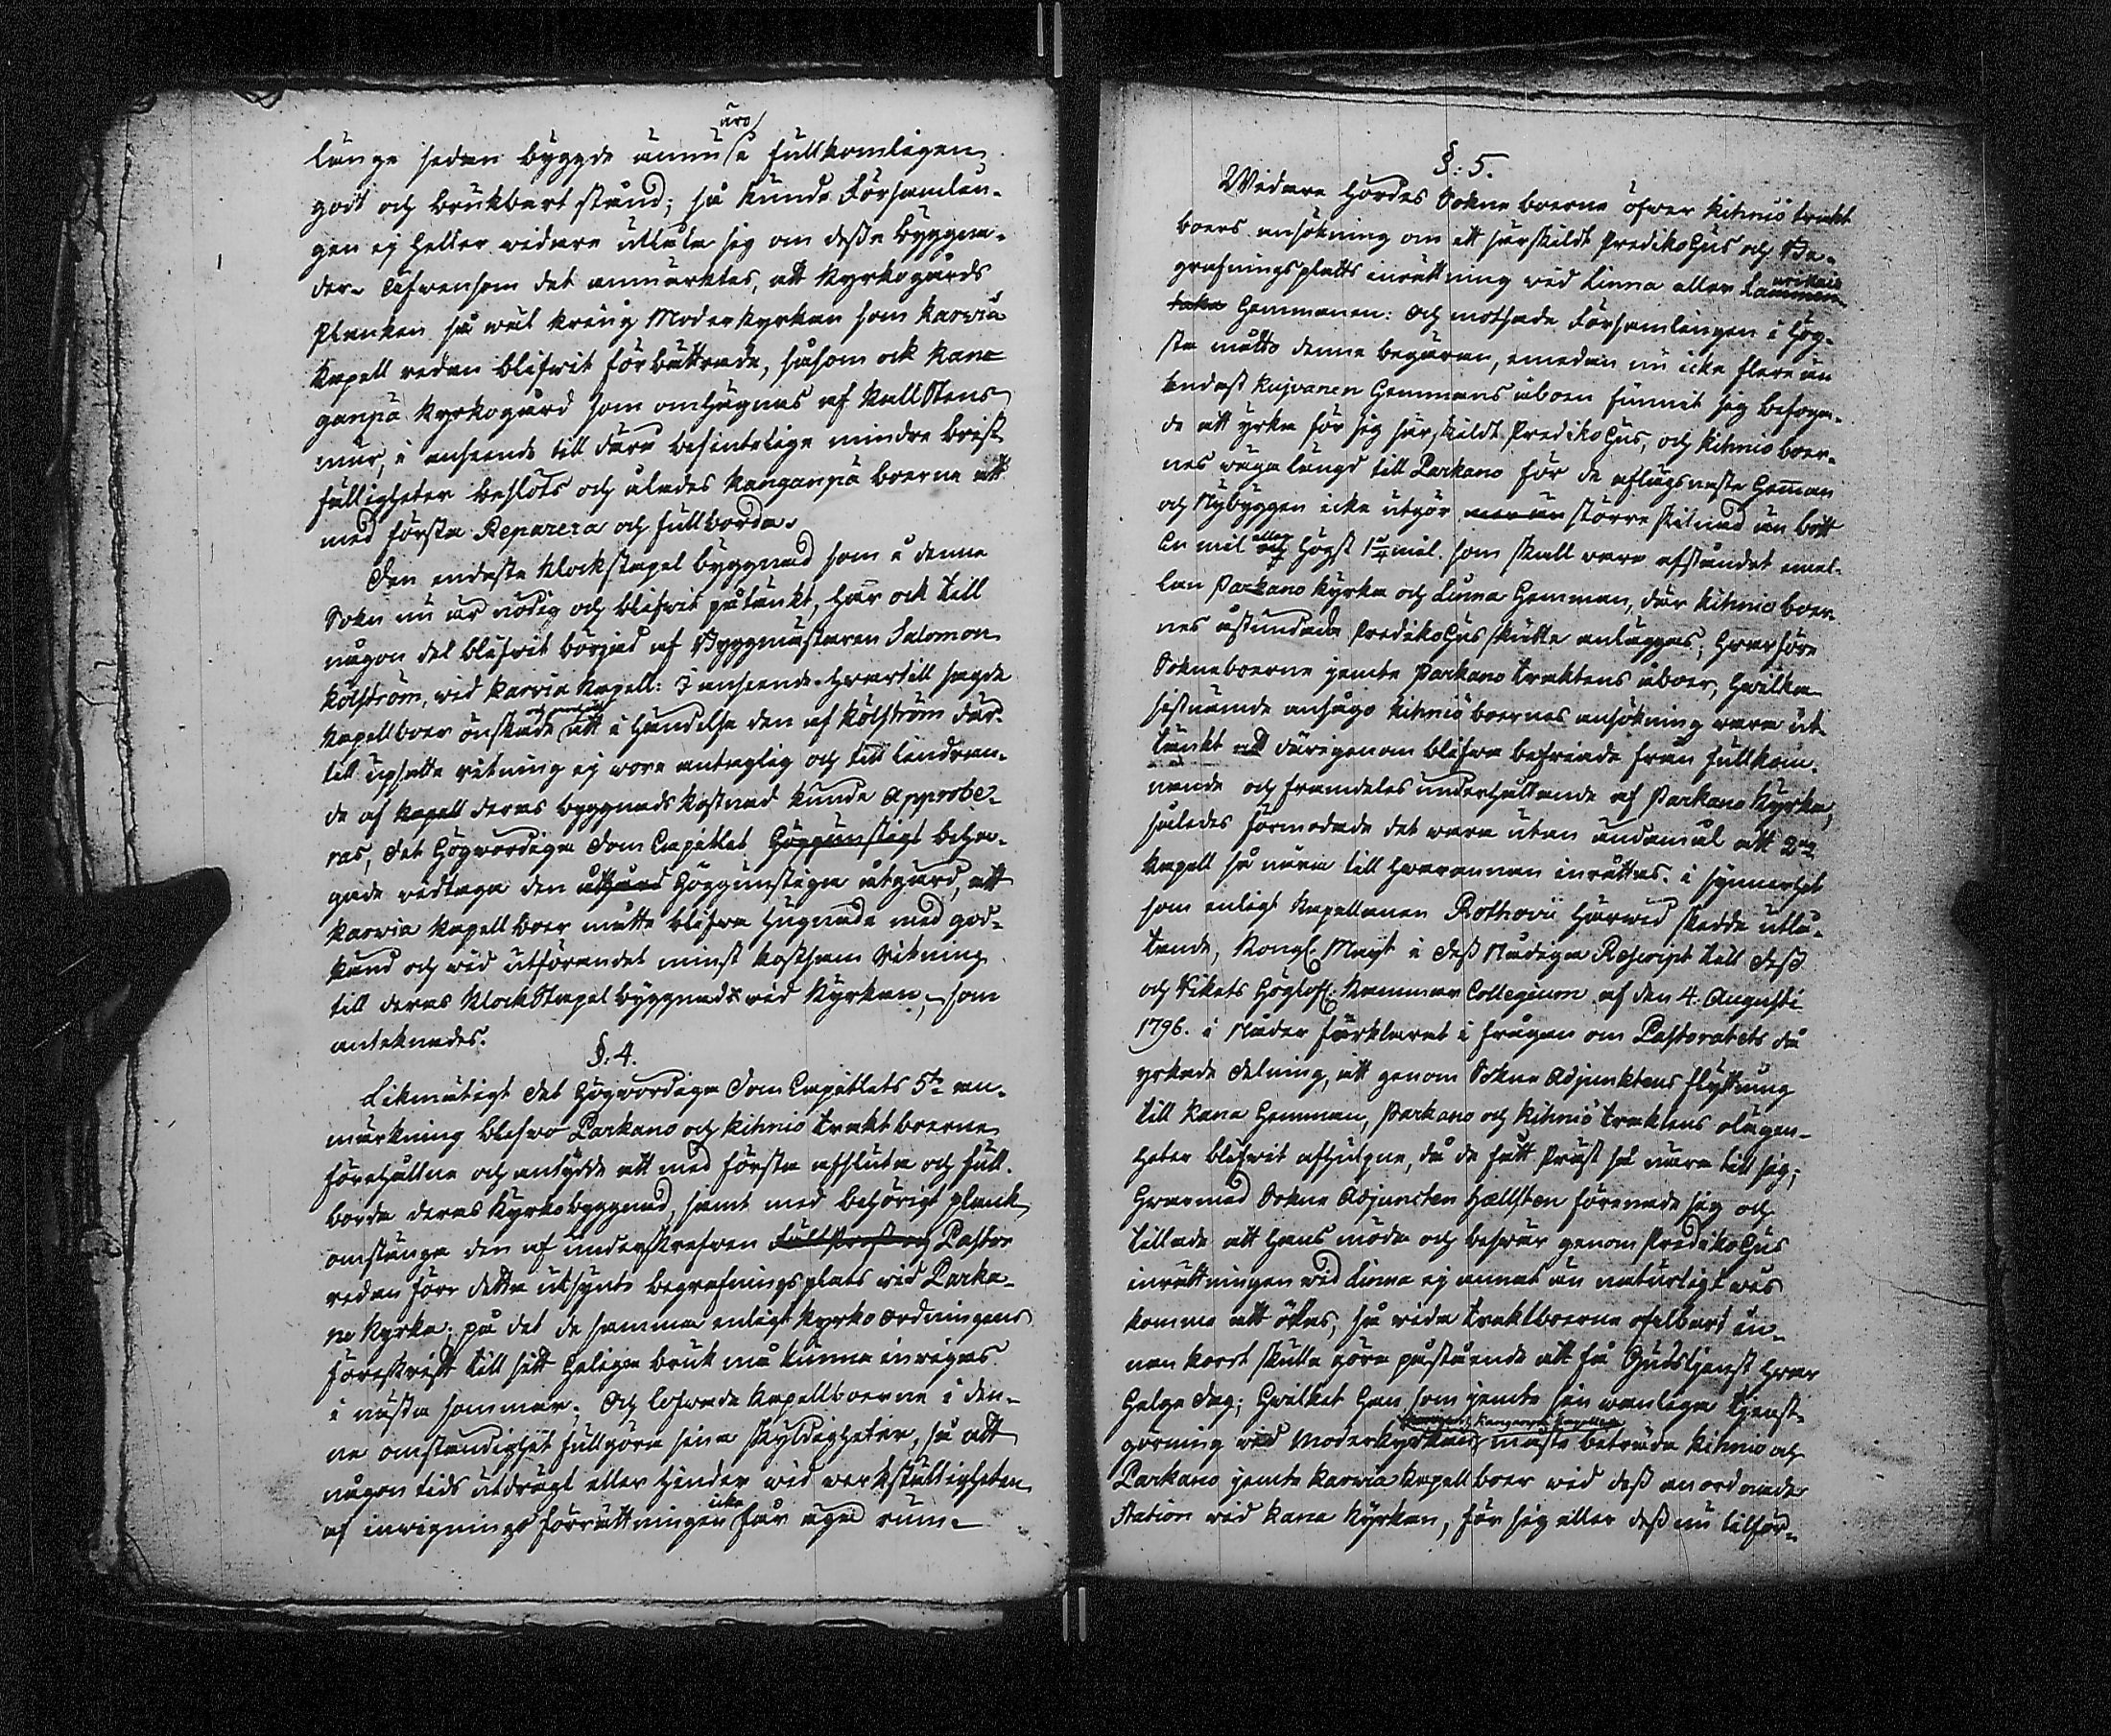 äro
länge sedan byggde ännu i fullkomligen
godt och brukbart stånd; så kunde Församlin-
gen ej heller widare utlåta sig om dessa byggna-
der. Äfwensom det anmärktes, att Kyrkogårds
Planken så wäl kring Moderkyrkan som Karvia
Kapell redan blifwit förbättrade, såsom ock Kan-
ganpä Kyrkogård som omhägnas af Kall Stens
mur, i anseende till dera befinteliga mindre brist-
fälligheter beslöts och ålades Kanganpä boerne att
med första Reparera och fullborda.
Den endaste Klockstapel byggnad som i denne
Sokn nu är nödig och blifwit påtänkt, har ock till
någon del blifwit börjad af Byggmästaren Salomon
Kölström, wid Karvia Kapell: I anseende hwartill sagde
Kapellboer önskade att i händelse den af Kölström där-
till upsatte ritning ej wore antaglig och till lindran-
de af Kapell deras byggnads kostnad kunde Approbe-
ras, det Högwördiga Dom Capitlet Höggunstigt beha-
gade widtaga den åtgärd Höggunstiga åtgärd, att
Karvia Kapell boer måtte blifwa hugnade med god-
känd och wid utförandet minst kostsam Ritning
till deras Klock Stapel byggnad wid Kyrkan; som
anteknades.
§. 4.
Likmätigt det Högwördiga Dom Capitlets 5te an-
märkning blefwo Parkano och Kihniö trakt boerne
förehållne och antydde att med första afsluta och full-
borda deras Kyrkobyggnad, samt med behörigt plank
omstänga den af underskrefwen Pastor
redan före detta utsynte begrafningsplats wid Parka-
no Kyrka; på det de samma enligt Kyrko ordningens
föreskrift till sitt heliga bruk må kunna inwigas
i nästa sommar; Och lofwade Kapellboerne i den-
na omständighet fullgöra sina skyldigheter, så att
någon tids utdrägt eller hinder wid werkställigheten
af inwignings förrättningen icke får äga rum.
§: 5.
Widare hördes Sokne boerne öfwer Kihniö trakt
boers ansökning om ett särskildt Predikohus och Be-
grafningsplatts inrättning wid Linna eller
Hemmanen: Och motsade Församlingen i hög-
sta måtto denna begäran, emedan nu icke flere än
endast Kujvanen Hemmans åboen funnit sig befoga-
de att yrka för sig särskildt Predikohus, och Kihniö boer-
nes wäga längd till Parkano för de aflägsnaste Heman
och Nybyggen icke utgör större skilnad än bott
en mil eller högst 1 1/4 mil. som skall wara afståndet emel-
lan Parkano Kyrka och Linna Hemman, där Kihniö boer-
nes åstundade Predikohus skulle anläggas; hwarföre
Sokneboerne jemte Parkano traktens åboer, hwilka
sistnämde ansågo Kihniö boernes ansökning wara ut-
tänkt at därigenom blifwa befriade från fullkom-
nande och framdeles underhållande af Parkano Kyrka,
således förmodade det wara utan ändamål att 2ne
Kapell så nära till hwarannan inrättas. i synnerhet
som enligt Kapellanen Rothovii härwid skedde utlå-
tande, Kongl. Mayt i dess Nådiga Rescript till dess
och Rikets Höglofl. Kammar Collegium af den 4. Augusti
1796. i Nåder förklarat i frågan om Pastoratets då
yrkade delning, att genom Sokne Adjunktens flyttning
till Kana Hemman, Parkano och Kihniö traktens olägen-
heter blifwit afhulpne, då de fått Präst så nära till sig;
Hwarmed Sokne Adjuncten Hællsten förenade sig och
tillade att hans möda och beswär genom Predikohus
inrättningen wid Linna ej annat än naturligt wis
komme att ökas, så wida traktboerne ofelbart in-
nan kort skulle göra påstående att få Gudstjenst hwar
Helge dag; hwilket han som jemte sin wanliga tjenst-
göring wid Moderkyrkan måste beträda Kihniö och
Parkano jemte Karvia Kapell boer wid dess anordnade
Station wid Kana Kyrkan, för sig eller dess nu tilför-